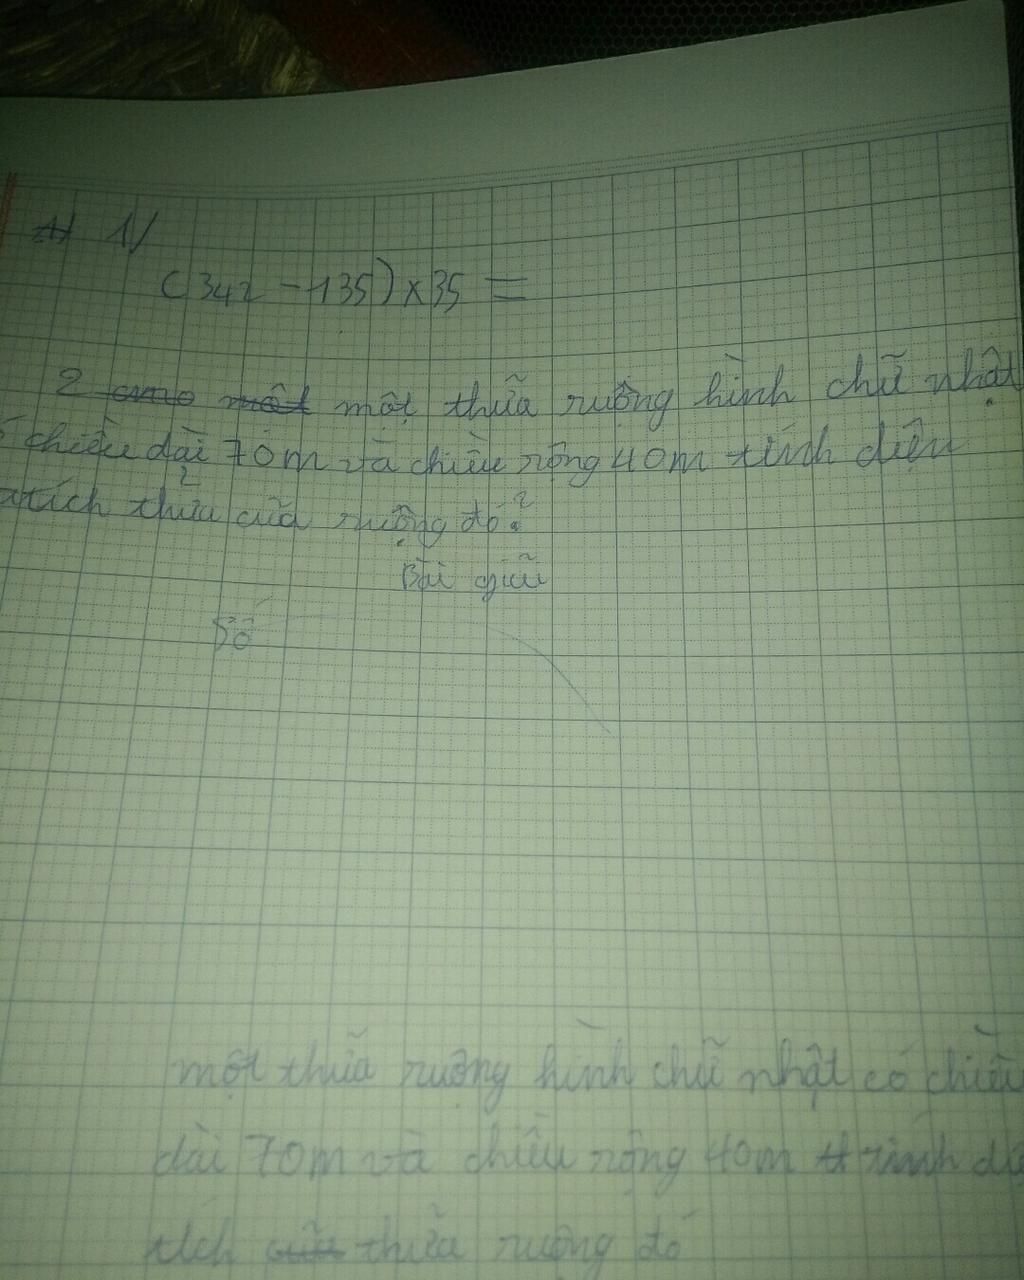 1/
(342 - 135) x 35 =
2 một thữa ruộng hình chữ nhật
chiều dài 70m và chiều rộng 40m tính diện
tích thửa của ruộng đó?
Bài giãi
Số
một thữa ruộng hình chữ nhật có chiều
dài 70m và chiều rộng 40m tính
tích thửa ruộng đó